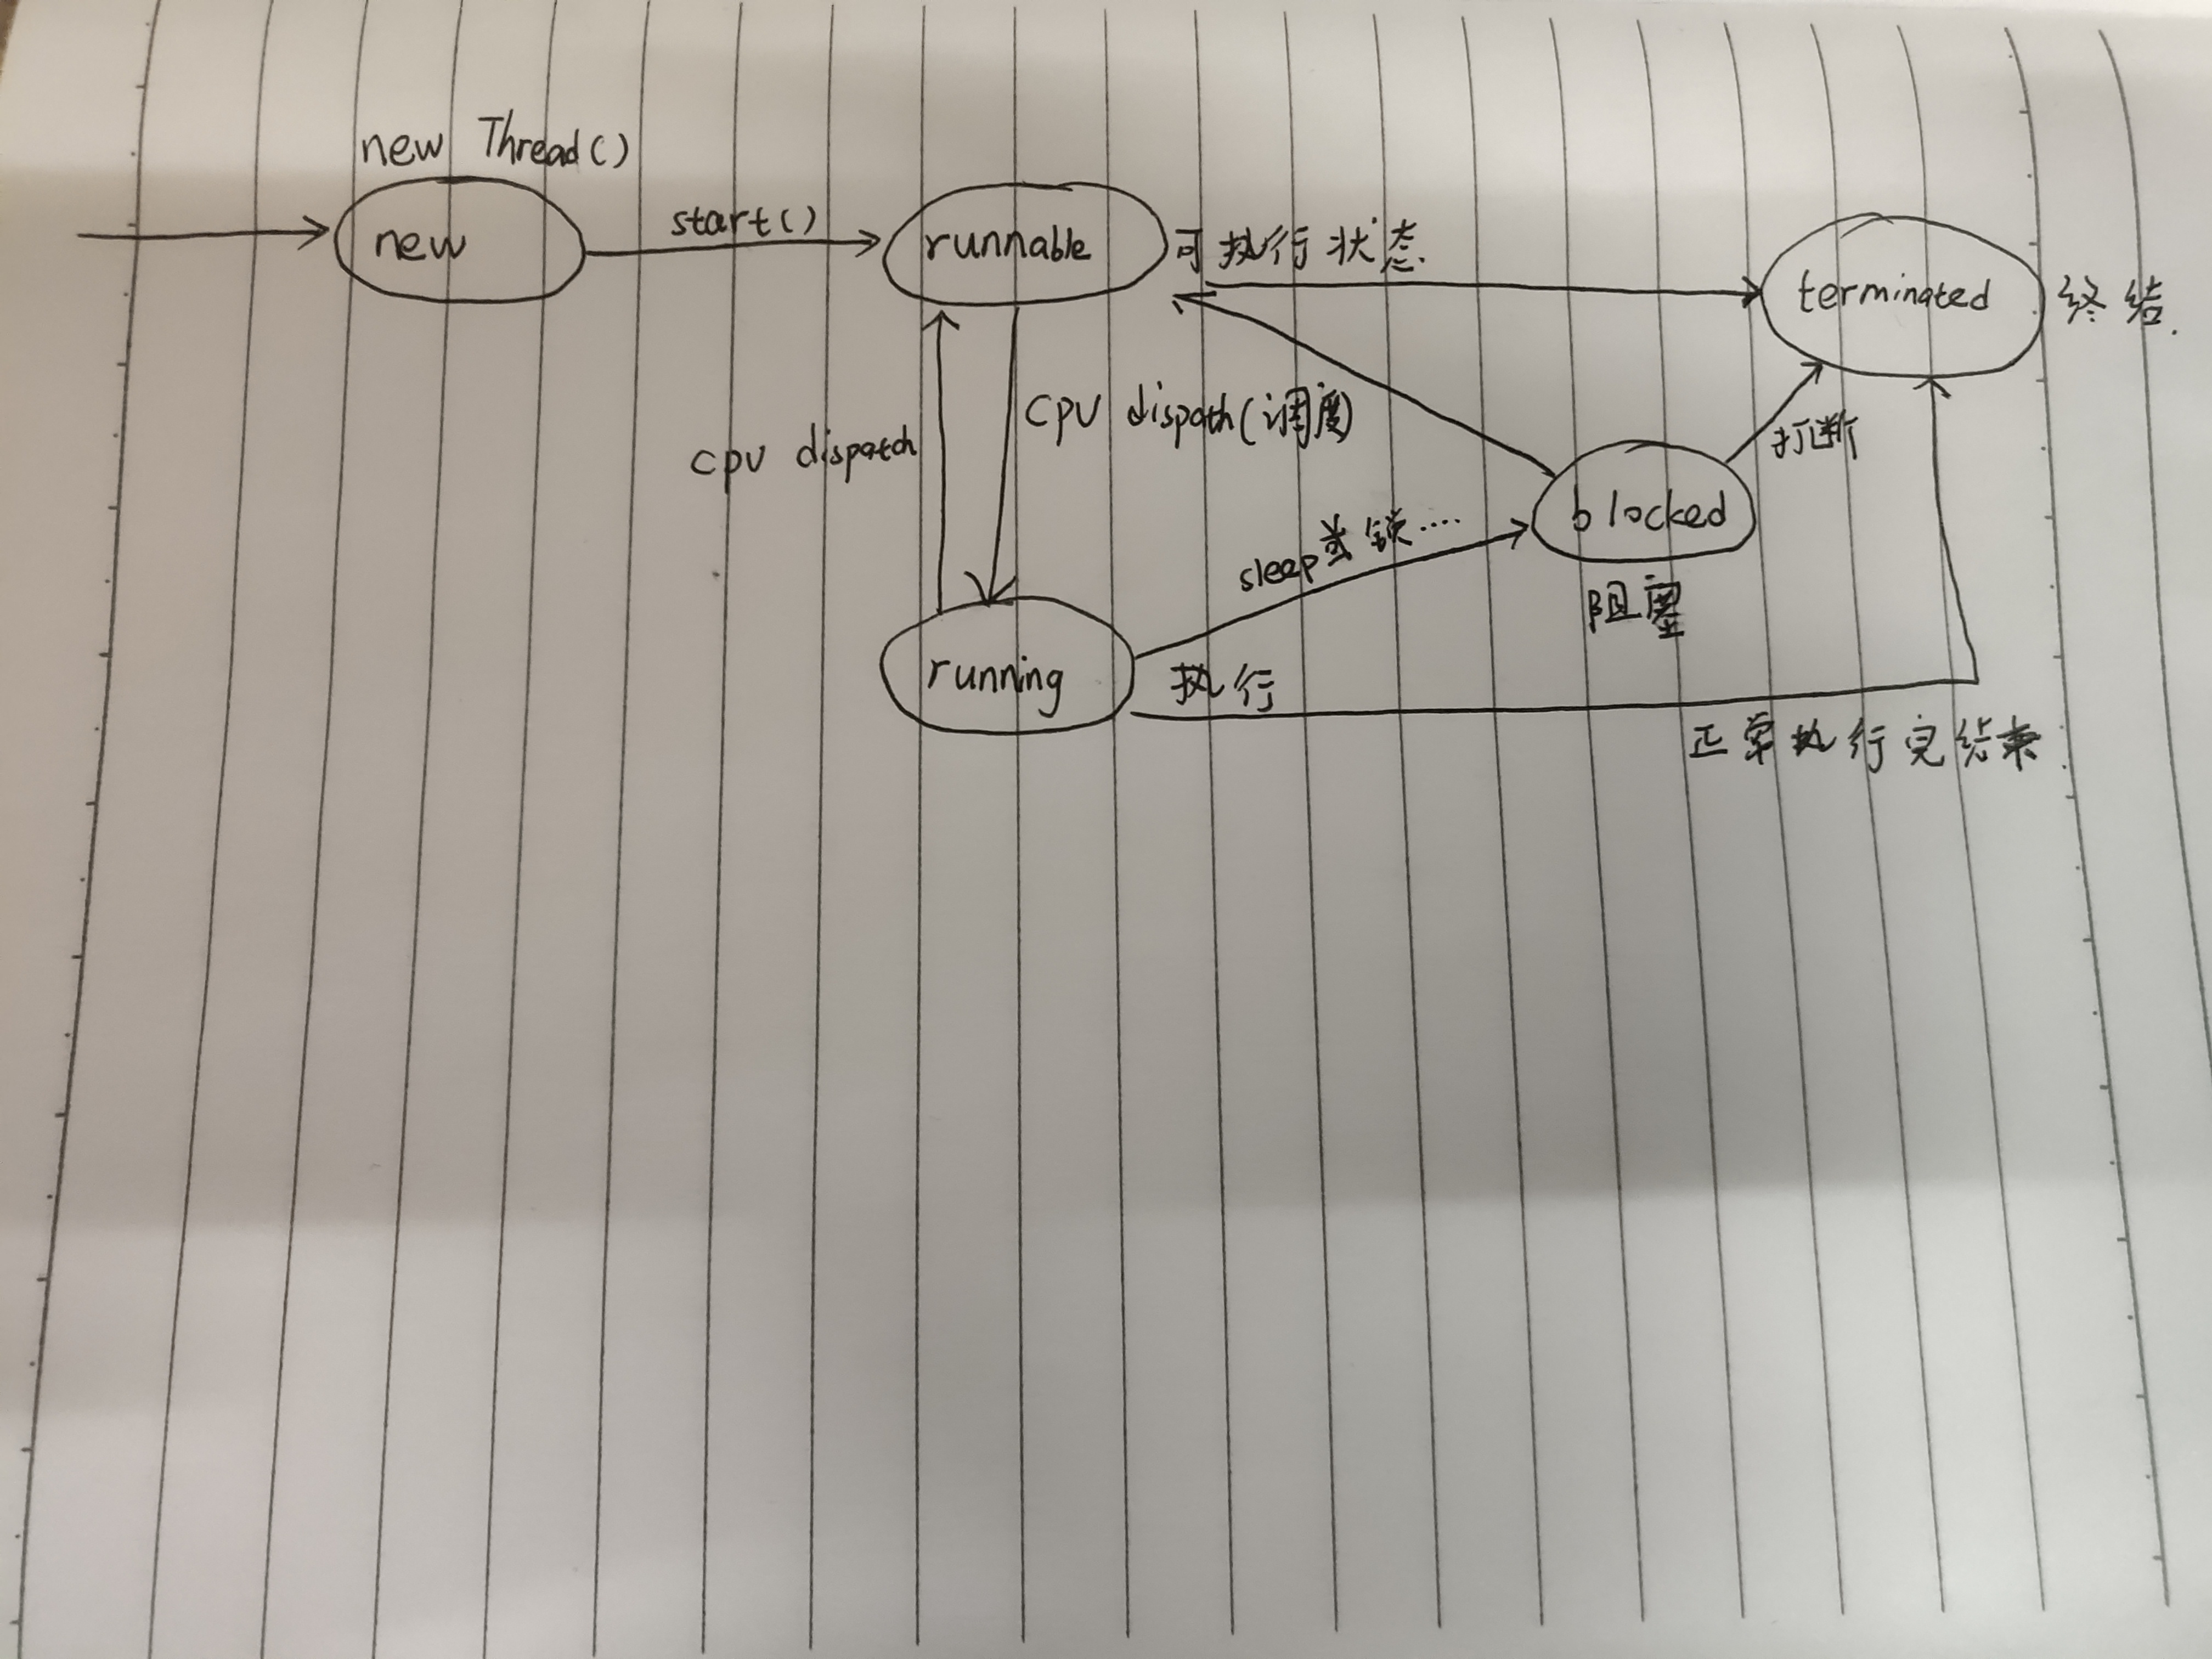 new Thread()
new
start()
runnable
可执行状态.
terminated
终结.
cpu dispatch
cpu dispath(调度)
打断
sleep或锁....
blocked
阻塞
running
执行
正常执行完结束